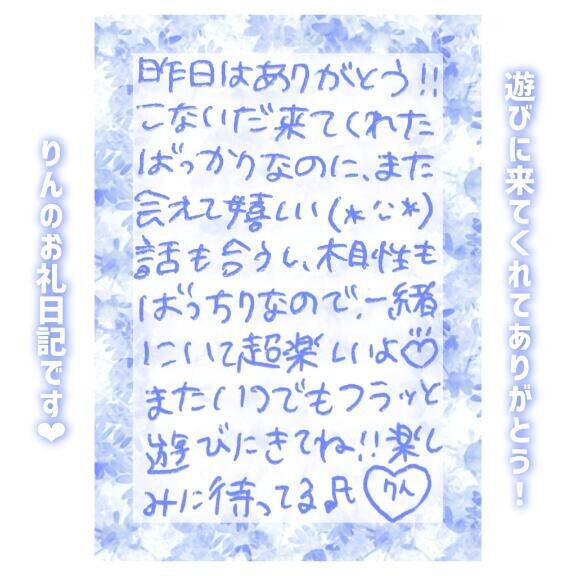 遊びに来てくれてありがとう!
昨日はありがとう!!
こないだ来てくれた
ばっかりなのに、また
会えて嬉しい(*^^*)
話も合うし、相性も
ばっちりなので、一緒
にいて超楽しいよ♡
またいつでもフラッと
遊びにきてね!!楽し
みに待ってる♬
りん
りんのお礼日記です❤